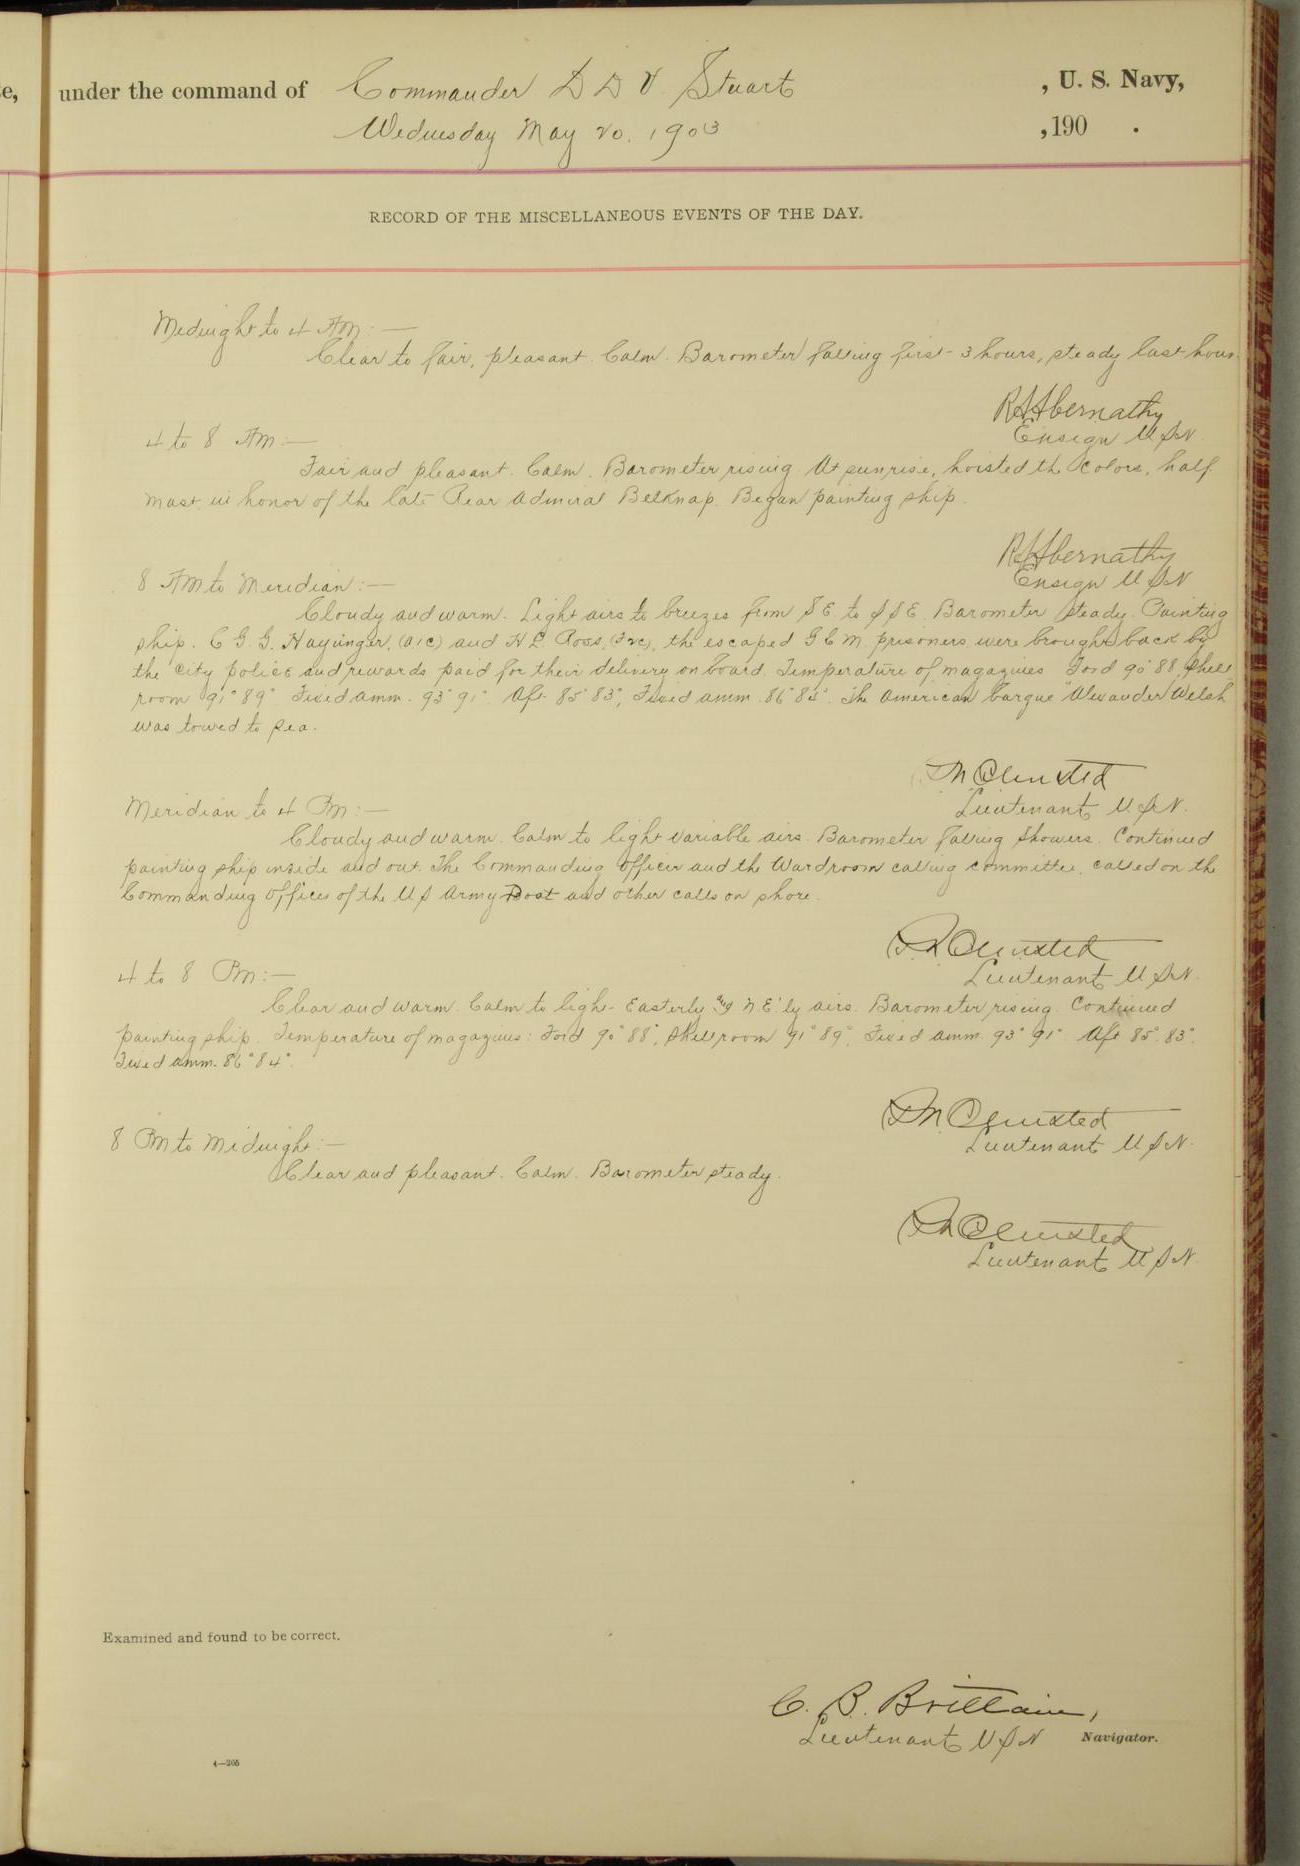 te, under the command of Commander D D V. Stuart , U. S. Navy,
Wednesday May 20. 1903 , 190 .
RECORD OF THE MISCELLANEOUS EVENTS OF THE DAY.
Midnight to 4 AM:—
Clear to fair, pleasant. Calm. Barometer falling first 3 hours, steady last hour.
R Abernathy
Ensign U S N.
4 to 8 AM:—
Fair and pleasant. Calm. Barometer rising. At sunrise, hoisted the colors, half
mast, in honor of the late Rear Admiral Belknap. Began painting ship.
R Abernathy
Ensign U S N
8 AM to Meridian:—
Cloudy and warm. Light airs to breezes from SE to SSE. Barometer steady. Painting
ship. C G. G. Hayunger, and H L Ross, the escaped G C M prisoners were brought back by
the city police and rewards paid for their delivery on board. Temperature of magazines Ford 90° 88°, Shell
room 91° 89° Fixed amm. 93° 91° Aft 85° 83°, Fixed amm. 86° 84°. The American barque "Alexander Welsh"
was towed to sea.
Olmsted
Lieutenant U. S. N.
Meridian to 4 PM:—
Cloudy and warm. Calm to light variable airs. Barometer falling. Showers. Continued
painting ship inside and out. The Commanding Officer and the Wardroom calling committee, called on the
Commanding Officer of the U S Army Post and other calls on shore.
Olmsted
Lieutenant U S N.
4 to 8 PM:—
Clear and warm. Calm to light Easterly and N E'ly airs. Barometer rising. Continued
painting ship. Temperature of magazines: Ford 90° 88°, Shell room 91° 89°, Fixed amm. 93° 91° Aft 85° 83°.
Fixed amm. 86° 84°.
Olmsted
Lieutenant U S N.
8 PM to Midnight:—
Clear and pleasant. Calm. Barometer steady.
Olmsted
Lieutenant U S N.
Examined and found to be correct.
C. B. Brittain,
Lieutenant U S N Navigator.
4—205